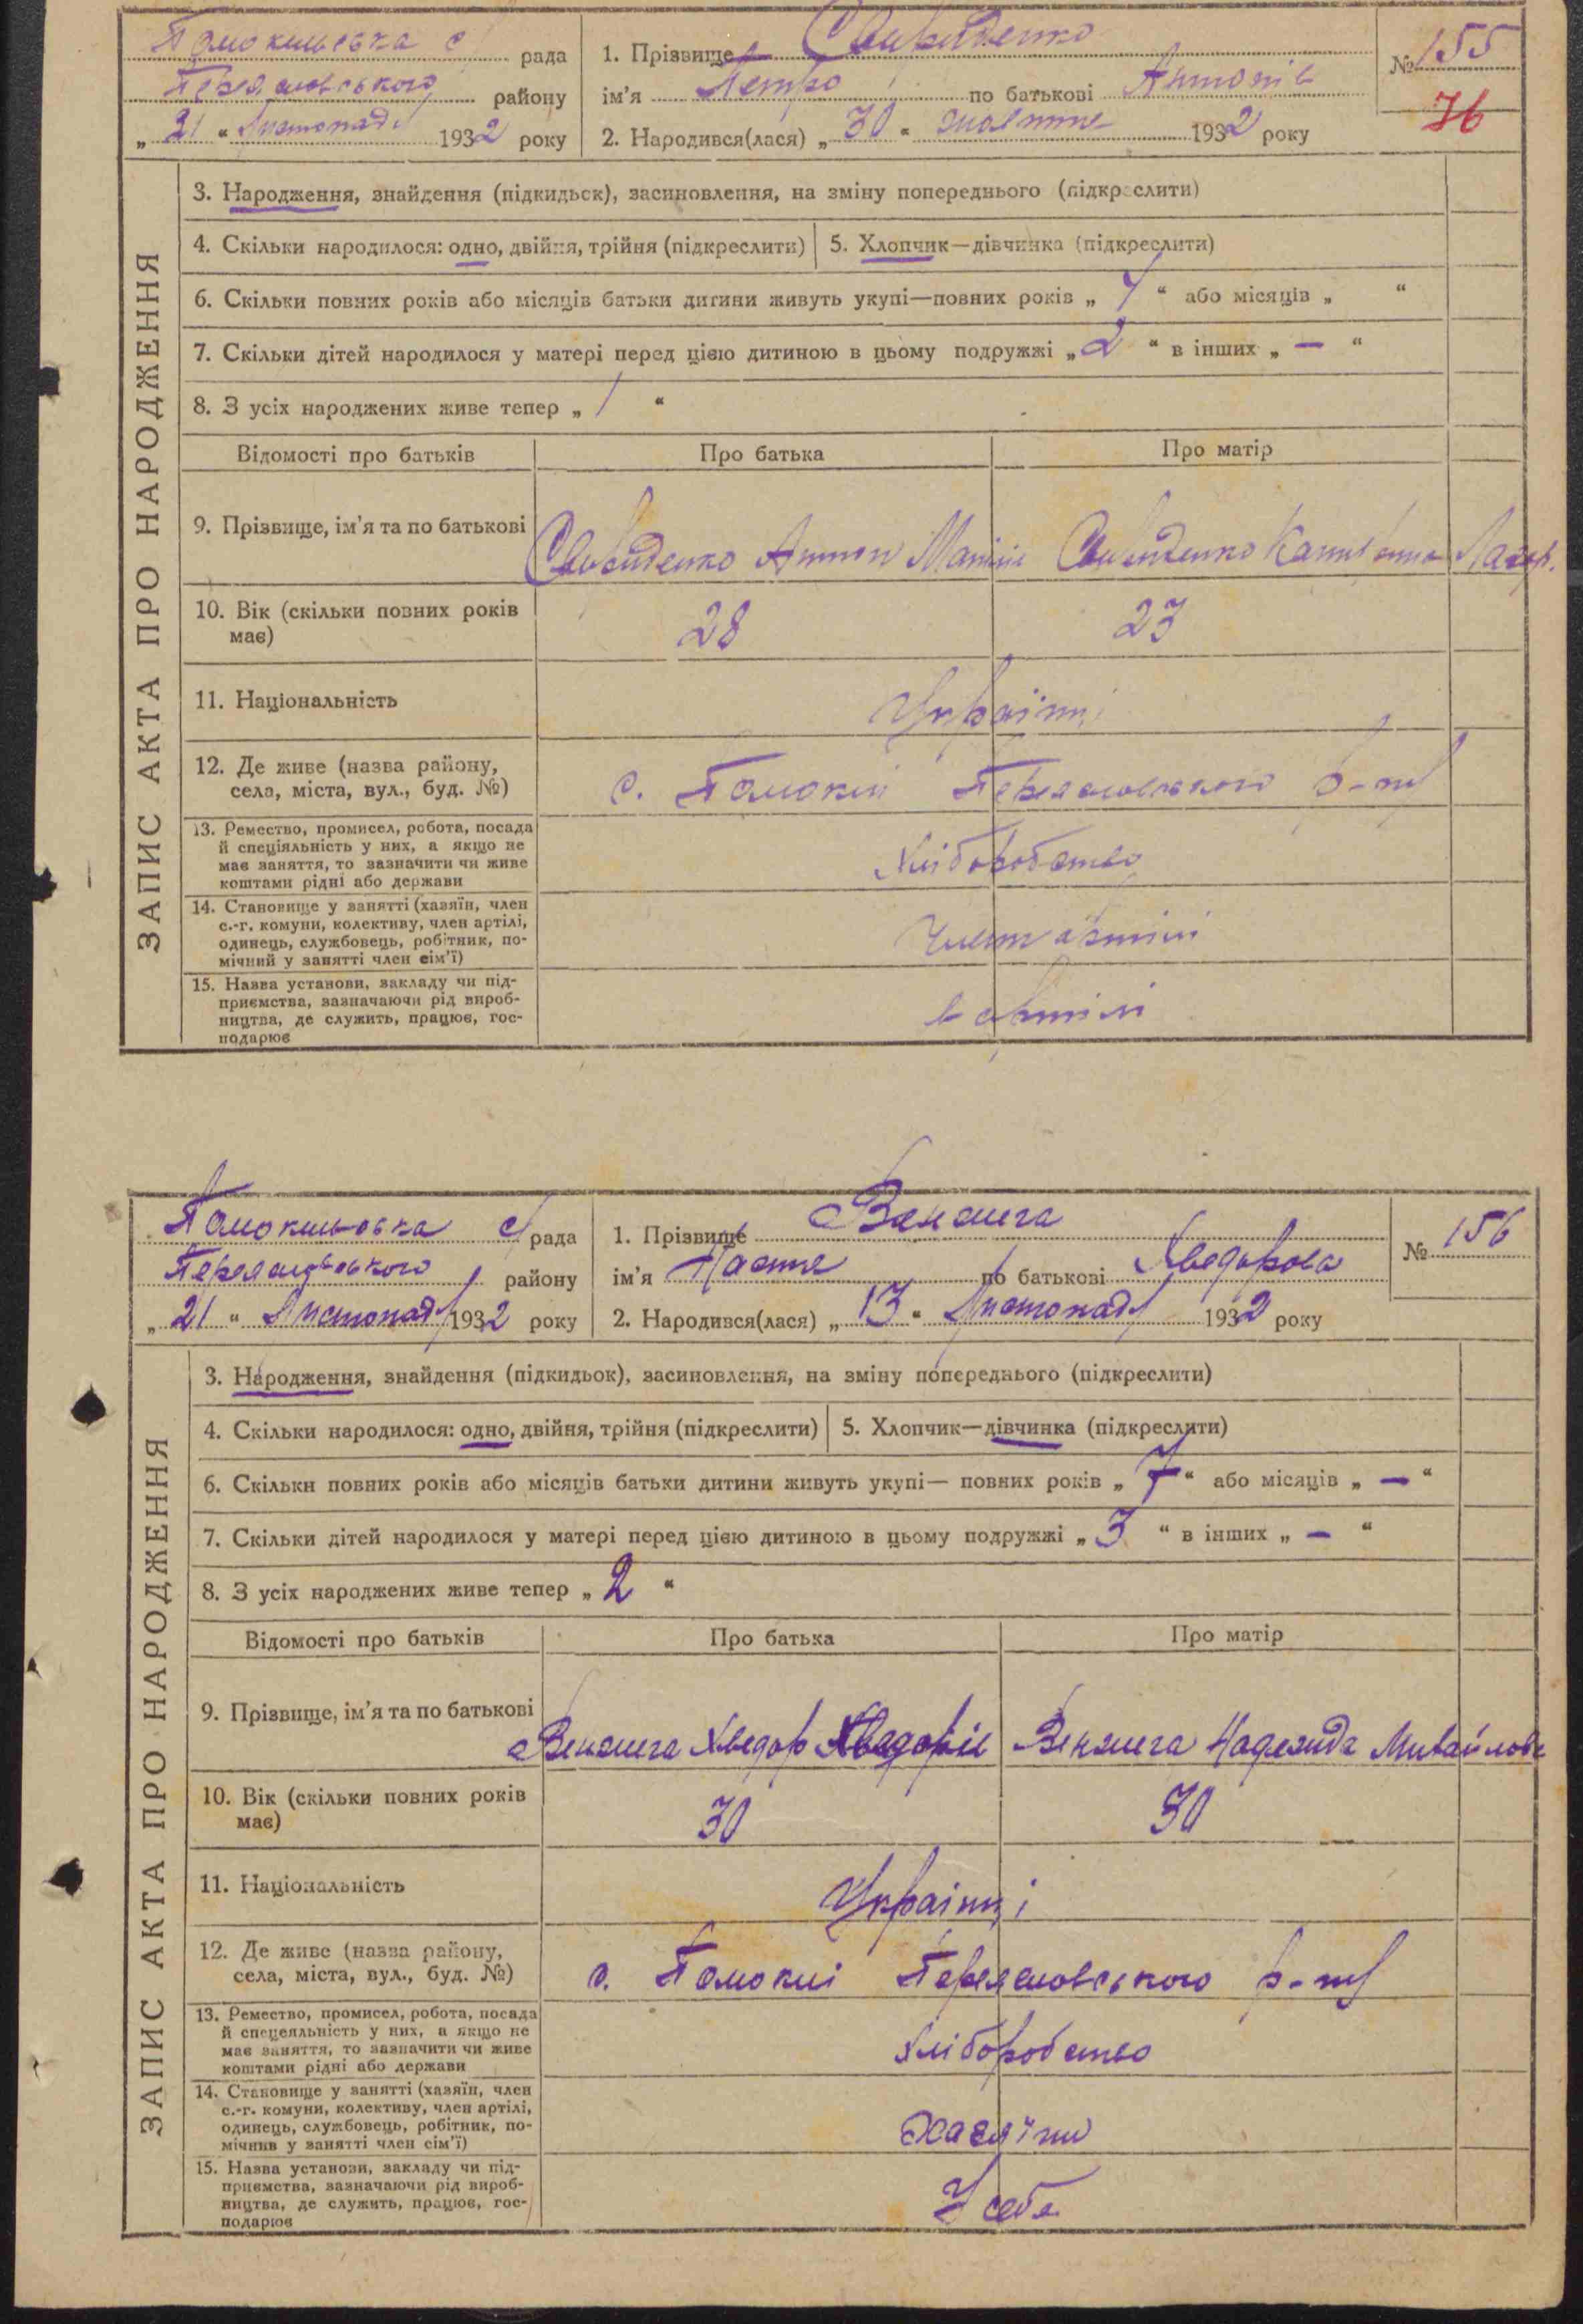 Помокильська с рада
Переяславського району
„ 21 “ Листопаду 1932 року
1. Прізвище Свириденко
ім'я Петро по батькові Антонів
2. Народився(лася) „ 30 “ жовтня 1932 року
№ 155
76
ЗАПИС АКТА ПРО НАРОДЖЕННЯ
3. Народження, знайдення (підкидьок), засиновлення, на зміну попереднього (підкреслити)
4. Скільки народилося: одно, двійня, трійня (підкреслити) 5. Хлопчик—дівчинка (підкреслити)
6. Скільки повних років або місяців батьки дитини живуть укупі—повних років „ “ або місяців „ “
7. Скільки дітей народилося у матері перед цією дитиною в цьому подружжі „ 2 “ в інших „ — “
8. З усіх народжених живе тепер „ 1 “
Відомості про батьків Про батька Про матір
9. Прізвище, ім'я та по батькові Свириденко Антон Свириденко
10. Вік (скільки повних років 28 23
має)
11. Національність Українці
12. Де живе (назва району, с. Помоклі Переяславського р-ну
села, міста, вул., буд. №)
13. Ремество, промисел, робота, посада
й спеціяльність у них, а якщо не
має заняття, то зазначити чи живе
коштами рідні або держави
Хліборобство
14. Становище у занятті (хазяїн, член
с.-г. комуни, колективу, член артілі,
одинець, службовець, робітник, по-
мічний у занятті член сім'ї)
Члени артілі
15. Назва установи, закладу чи під-
приємства, зазначаючи рід вироб-
ництва, де служить, працює, гос-
подарює
в артілі
Помокильська с рада
Переяславського району
„ 21 “ Листопаду 1932 року
1. Прізвище Венжега
ім'я Настя по батькові Хведорова
2. Народився(лася) „ 13 “ Листопаду 1932 року
№ 156
ЗАПИС АКТА ПРО НАРОДЖЕННЯ
3. Народження, знайдення (підкидьок), засиновлення, на зміну попереднього (підкреслити)
4. Скільки народилося: одно, двійня, трійня (підкреслити) 5. Хлопчик—дівчинка (підкреслити)
6. Скільки повних років або місяців батьки дитини живуть укупі— повних років „ 7 “ або місяців „ — “
7. Скільки дітей народилося у матері перед цією дитиною в цьому подружжі „ 3 “ в інших „ — “
8. З усіх народжених живе тепер „ 2 “
Відомості про батьків Про батька Про матір
9. Прізвище, ім'я та по батькові Венжега Хведор Хведорів Венжега Надежда Михайлова
10. Вік (скільки повних років 30 30
має)
11. Національність Українці
12. Де живе (назва району, с. Помоклі Переяславського р-ну
села, міста, вул., буд. №)
13. Ремество, промисел, робота, посада
й спецеяльність у них, а якщо не
має заняття, то зазначити чи живе
коштами рідні або держави
Хліборобство
14. Становище у занятті (хазяїн, член
с.-г. комуни, колективу, член артілі,
одинець, службовець, робітник, по-
мічнив у занятті член сім'ї)
Хазяїни
15. Назва установи, закладу чи під-
приємства, зазначаючи рід вироб-
ництва, де служить, працює, гос-
подарює
У себе